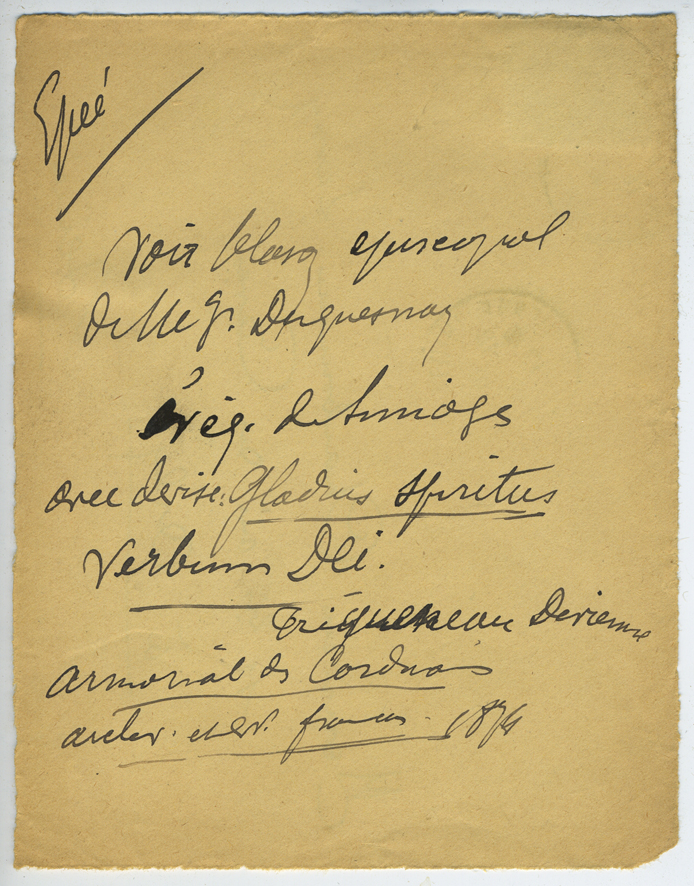 Épée
Voir blason episcopal
de Mgr. Duquesnay
évêq. de Limoges
avec devise: Gladius spiritus
Verbum Dei.
Devienne
armorial des Cardinaux
archev. et ev. francais. 1874